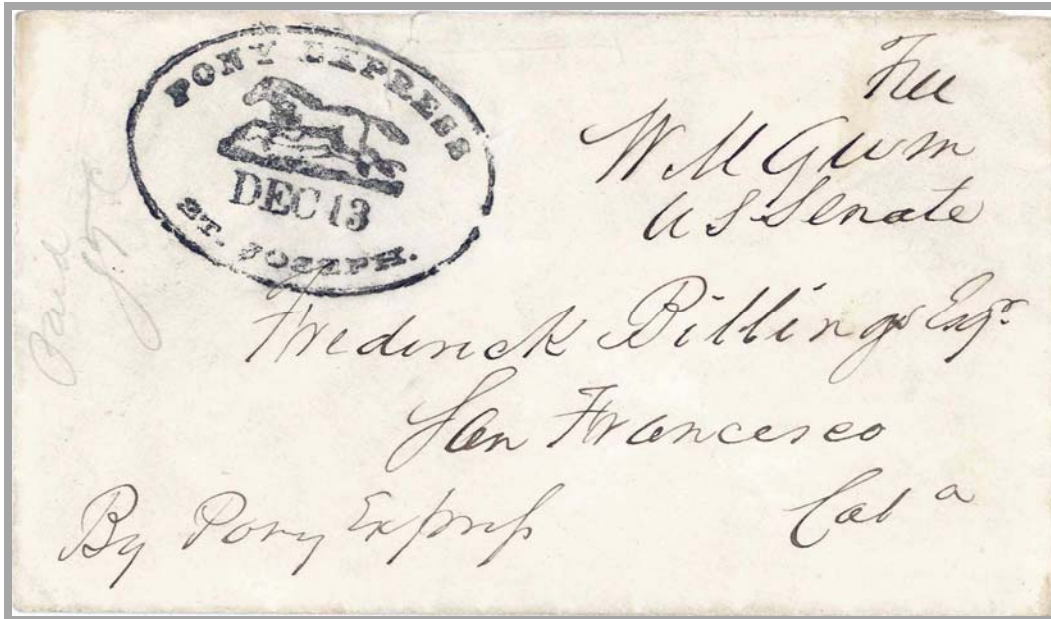 PONY EXPRESS
DEC 13
ST. JOSEPH.
Free
W M Gwin
U S Senate
Frederick Billings Esqr.
San Francesco
Cala
By Pony Express
Paid